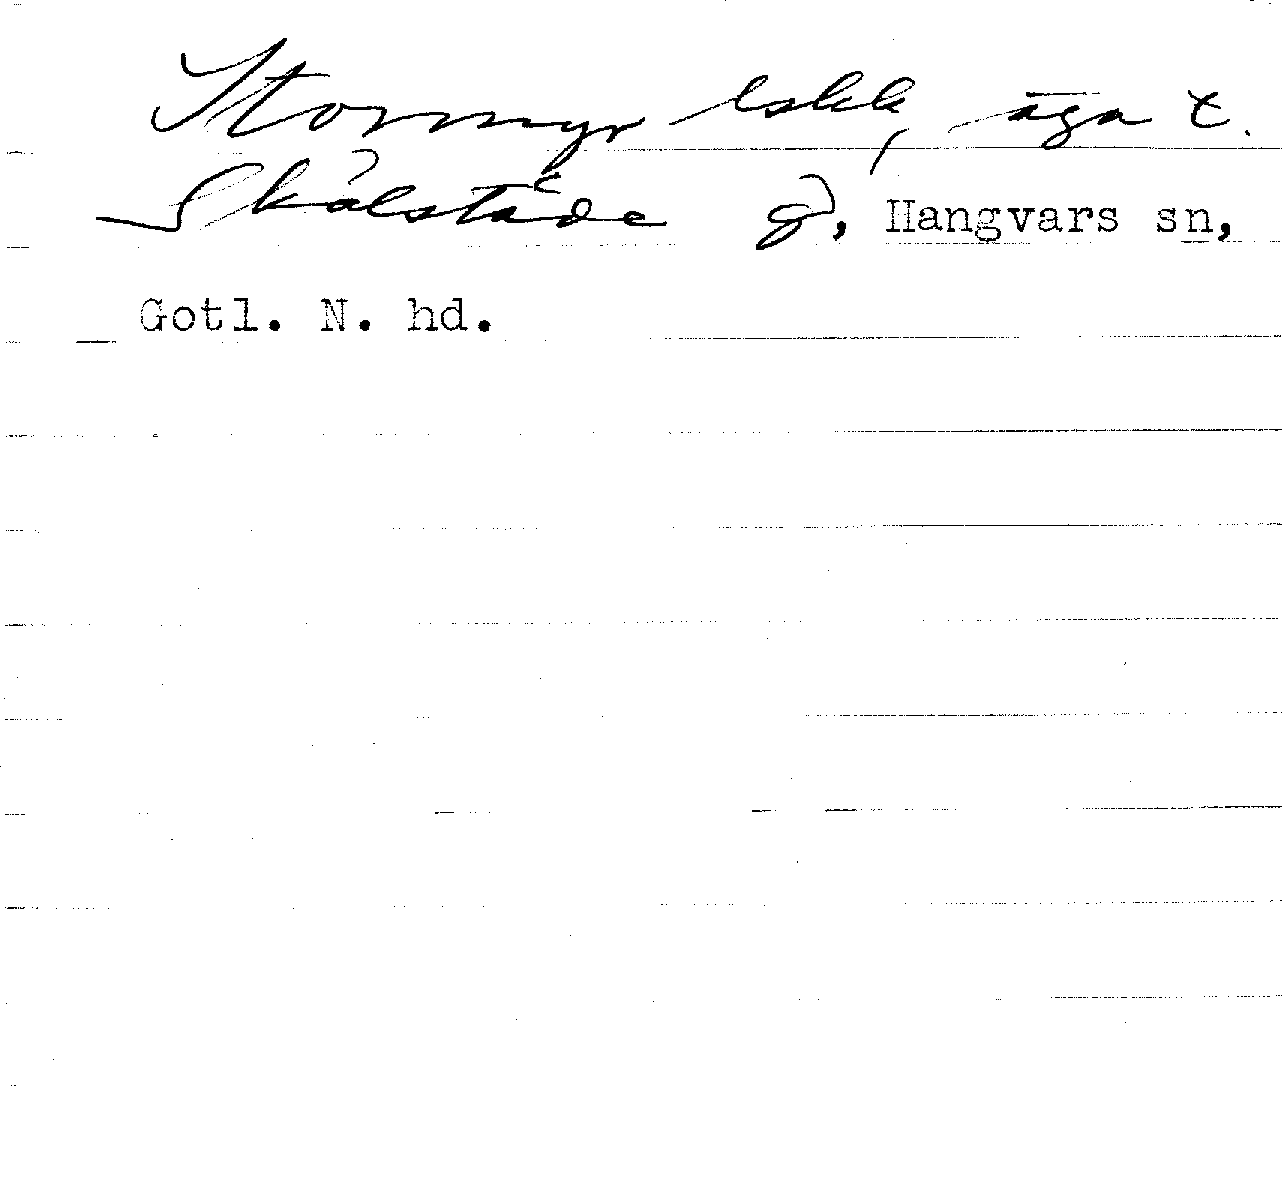 Stormyr lskk, äga t.
Skälstäde g, Hangvars sn,
Gotl. N. hd.